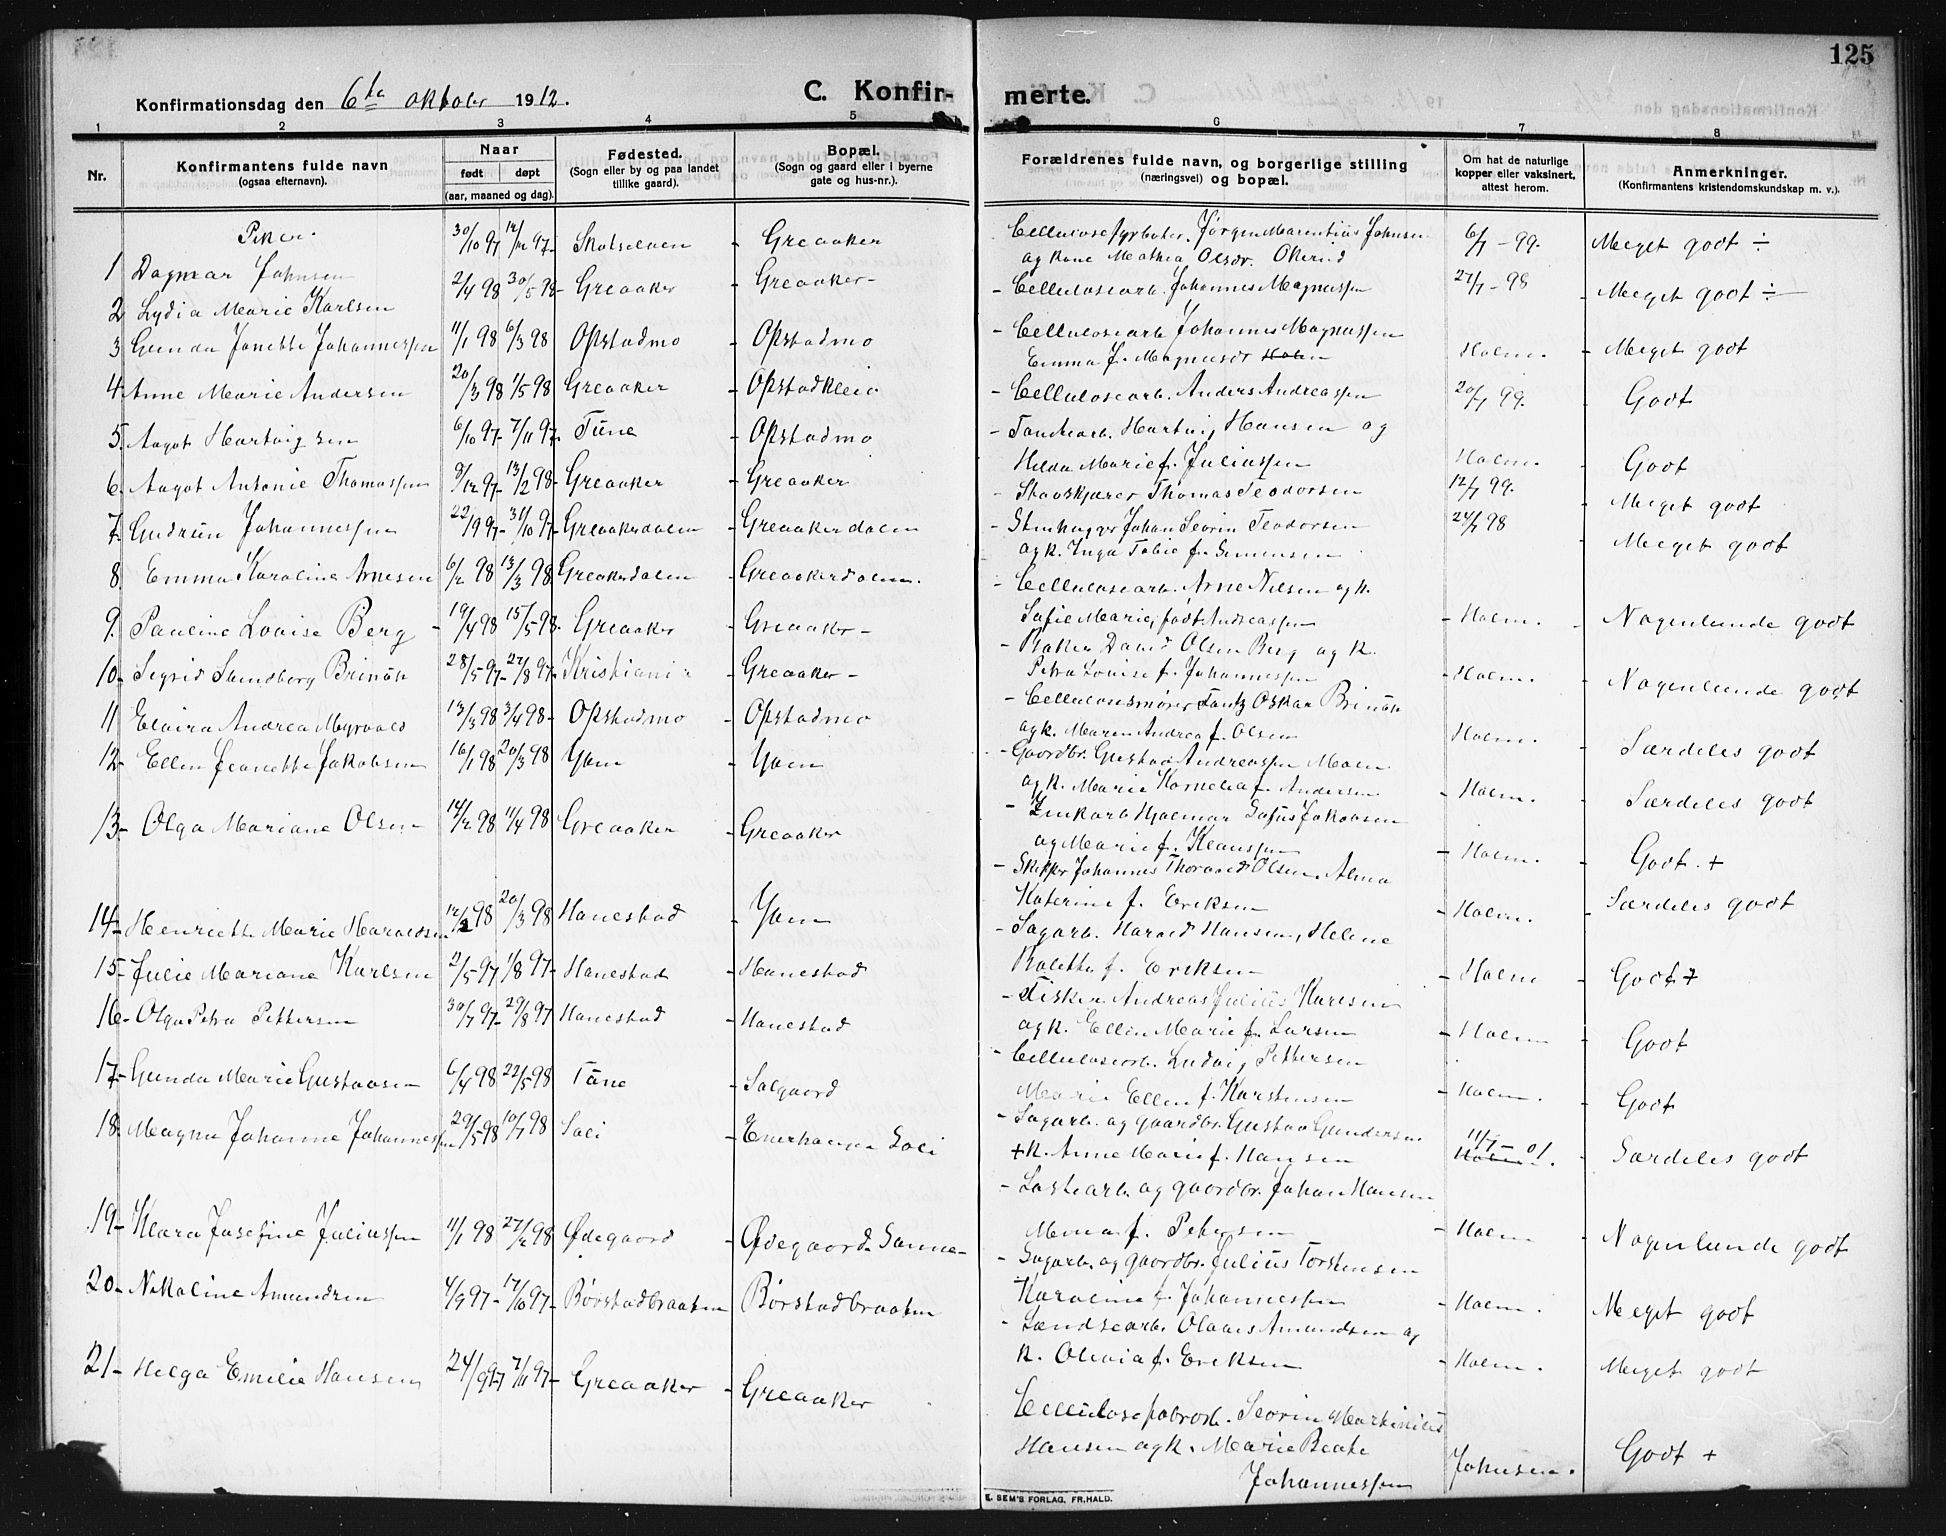 125
Konfirmationsdag den 6te oktober 1912.
C. Konfirmerte.
1 2 3 4 5 6 7 8
Nr.
Konfirmantens fulde navn
(ogsaa efternavn).
Naar
født døpt
(aar, maaned og dag).
Fødested.
(Sogn eller by og paa landet
tillike gaard).
Bopæl.
(Sogn og gaard eller i byerne
gate og hus-nr.).
Forældrenes fulde navn, og borgerlige stilling
(næringsvei) og bopæl.
Om hat de naturlige
kopper eller vaksinert,
attest herom.
Anmerkninger.
(Konfirmantens kristendomskundskap m. v.).
Piker.
1 Dagmar Johnsen 30/10 97 12/12 97- Skotselven - Greaaker Cellulosefyrbøter Jørgen Marentius Johnsen 6/7 - 99. Meget godt ÷
og kone Mathea Olsdr. Økerud
2 Lydia Marie Karlsen 2/4 98 30/5 98- Greaaker - Greaaker- - Cellulosearb. Johannes Magnussen 27/7 - 98 - Meget godt ÷
3 Gunda Janette Johannessen 11/1 98 6/3 98 Opstadmo - Opstadmo - Cellulosearb. Johannes Magnussen
Emma f. Magnusdr Holm. - Meget godt
4 Anne Marie Andersen 20/3 98 1/5 98 Greaaker - Opstadkleiv - Cellulosearb. Anders Andreassen 20/7 99. Godt
5. Aagot Hartvigsen 6/10 97- 7/11 97. Tune - Opstadmo - Tomtearb. Hartvig Hansen og
Hilda Marie f. Juliussen Holm. - Godt
6. Aagot Antonie Thomassen 9/12 97- 13/2 98 Greaaker - Greaaker - Stavskjærer Thomas Teodorsen 12/7 99. - Meget godt
7. Gudrun Johannessen 22/9 97- 31/10 97- Greaakerdalen - Greaakerdalen - Stenhugger Johan Severin Teodorsen 24/7 98 - Meget godt
og k. Inga Tobie f. Simensen
8 Emma Karoline Arnesen 6/2 98 13/3 98 Greakerdalen - Greaakerdalen. - Cellulosearb. Arne Nilsen og k.
Sofie Marie, født Andreassen - Holm. - Nogenlunde godt
9. Pauline Lovise Berg - 19/4 98 15/5 98. Greaaker - Greaaker - - Baker David Olsen Berg og k.
Petra Lovise f. Johannessen - Holm. - Nogenlunde godt
10. Sigrid Sundborg 28/5 97- 27/8 97- Kristiania - Greaaker -
og k. Maren Andrea f. Olsen Holm. - Særdeles godt
11 Elvira Andrea Myrvold 13/3 98 3/4 98- Opstadmo - Opstadmo - Gaardbr. Gustav Andreassen
og k. Marie Kornelia f. Andersen - Holm. - Særdeles godt
12- Ellen Jeanette Jakobsen 16/1 98 20/3 98 Yven - Yven - Zinkarb Hjalmar Sofus Jakobsen
og Marie f. Klaussen - Holm. - Godt. +
13- Olga Mariane Olsen 12/2 98 11/4 98 Greaaker - Greaaker - Skipper Johannes Thorvald Olsen, Alma
Katerine f. Eriksen - Holm. - Særdeles godt
14- Henriette Marie Haraldsen 12/2 98 20/3 98 Hanestad - Yven - Sagarb. Harald Hansen, Helene
Bolette f. Eriksen - Holm - Godt +
15- Julie Mariane Karlsen 2/5 97 1/8 97- Hanestad - Hanestad - Fisker Andreas Julius Karlsen
og k. Ellen Marie f. Larsen - Holm - Godt
16- Olga Petra Pettersen 30/7 97- 29/8 97 Hanestad - Hanestad - Cellulosearb. Ludvig Pettersen
Marie Ellen f. Karstensen - Holm. - Godt
17- Gunda Marie Gustavsen 6/4 98 22/5 98 Tune - Solgaard - Sagarb. og gaardbr. Gustav Gundersen
+ k. Anne Marie f. Hansen 11/7 - 01. Holm - Særdeles godt
18. Magna Johanne Johannessen 29/5 98 10/7 98 Soli - Enerhaugen Soli - Lastearb. og gaardbr. Johan Hansen
Mina f. Petersen - Holm - Nogenlunde godt
19- Klara Josefine Juliussen 11/1 98 27/2 98 Ødegaard - Ødegaard Sanne- - Sagarb. og gaardbr. Julius Torstensen
Karoline f. Johannessen - Holm. - Meget godt
20- Nikoline Amundsen 4/9 97- 17/10 97- Børstadbraaten - Børstadbraaten - Olaves Amundsen og
k. Olivia f. Eriksen - Holm. - Meget godt
21- Helga Emilie Hansen 24/9 97 7/11 97- Greaaker - Greaaker Cellulosefabrarb. Severin Martinius
Hansen og k. Marie Beate
Johannessen Johnsen. Godt +
E. SEM'S FORLAG, FR.HALD.